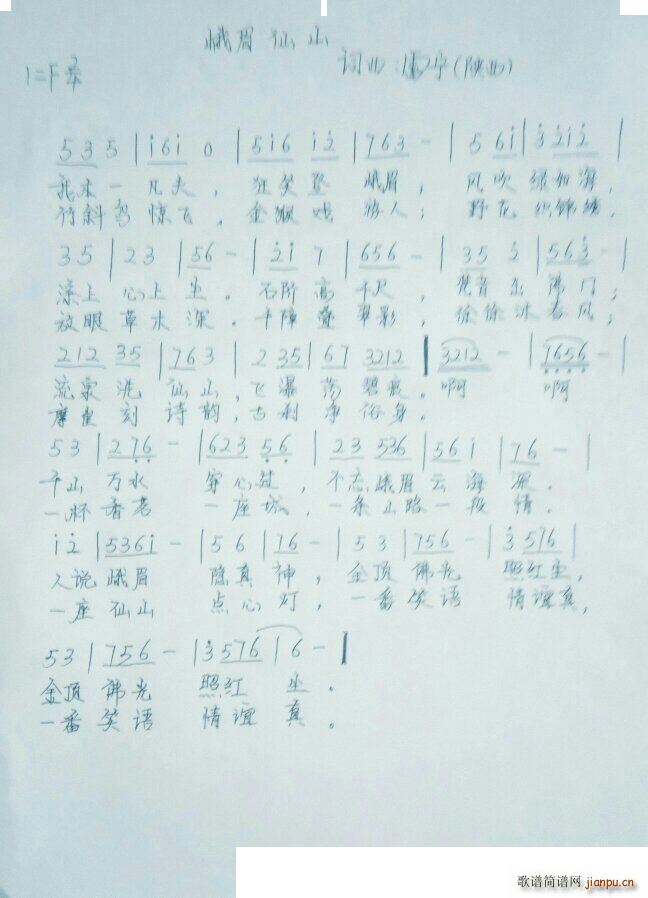 峨眉仙山
1=F 2/4
词曲:宁(陕西)
5 3 5 | i 6 i 0 | 5 i 6 i 2 | 7 6 3 - | 5 6 i | 3 2 i 2 |
我本一凡夫，狂笑登峨眉，风吹绿如海，
待斜鸟惊飞，金猴戏游人；野花织锦绣，
3 5 | 2 3 | 5 6 - | 2 i 7 | 6 5 6 - | 3 5 2 | 5 6 3 - |
深上心上尘。石阶高千尺，梵音出佛门；
放眼草木深。千障叠翠影，徐徐沐春风；
2 1 2 3 5 | 7 6 3 | 2 3 5 | 6 7 3 2 1 2 | 3 2 1 2 - | 7 6 5 6 - |
流泉洗仙山，飞瀑荡碧痕。啊 啊
摩崖刻诗韵，古刹净俗身。
5 3 | 2 7 6 - | 6 2 3 5 6 | 2 3 5 3 6 | 5 6 i | 7 6 - |
千山万水穿心过，不忘峨眉云海深。
一杯香茗一座城，一条山路一段情。
i 2 | 5 3 6 i - | 5 6 | 7 6 - | 5 3 | 7 5 6 - | 3 5 7 6 |
人说峨眉隐真神，金顶佛光照红尘，
一座仙山点心灯，一番笑语情谊真，
5 3 | 7 5 6 - | 3 5 7 6 | 6 - |
金顶佛光照红尘。
一番笑语情谊真。
歌谱简谱网
jianpu.cn